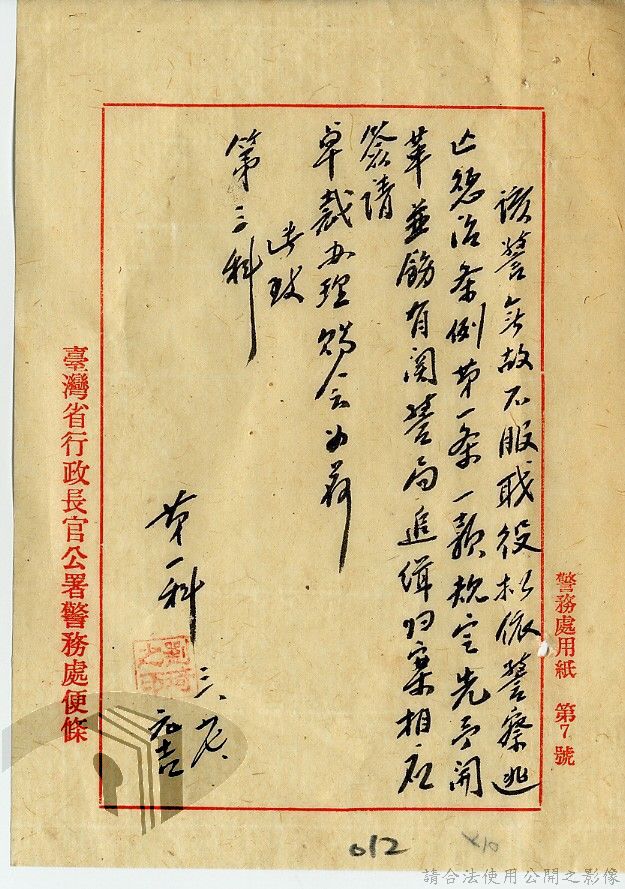 警務處用紙 第7號
該警無故不服职役拟依警察逃
亡懲治条例第一条一款規定先予開
革並飭有関警局追緝归案相应
簽請
卓裁办理賜会为荷
此致
第三科
第一科
臺灣省行政長官公署警務處便條
012
請合法使用公開之影像